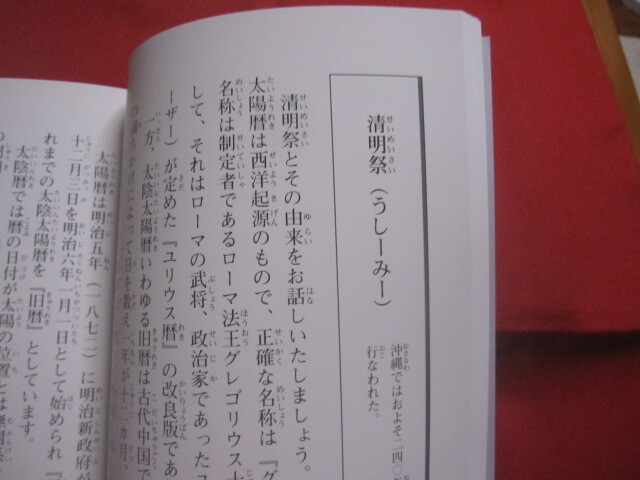 清明祭（うしーみー）
沖縄ではおよそ二四〇年
行なわれた。
清明祭とその由来をお話しいたしましょう。
太陽暦は西洋起源のもので、正確な名称は『グ
名称は制定者であるローマ法王グレゴリウス十
して、それはローマの武将、政治家であったユ
ーザー）が定めた『ユリウス暦』の改良版であ
一方、太陰太陽暦いわゆる旧暦は古代中国で
の満ちかけによって日を数え一年が十二カ月、
太陽暦は明治五年（一八七二）に明治新政府が
十二月三日を明治六年一月一日として始められ『
れまでの太陰太陽暦を『旧暦』としています。
太陰暦では暦の日付が太陽の位置とは無関係